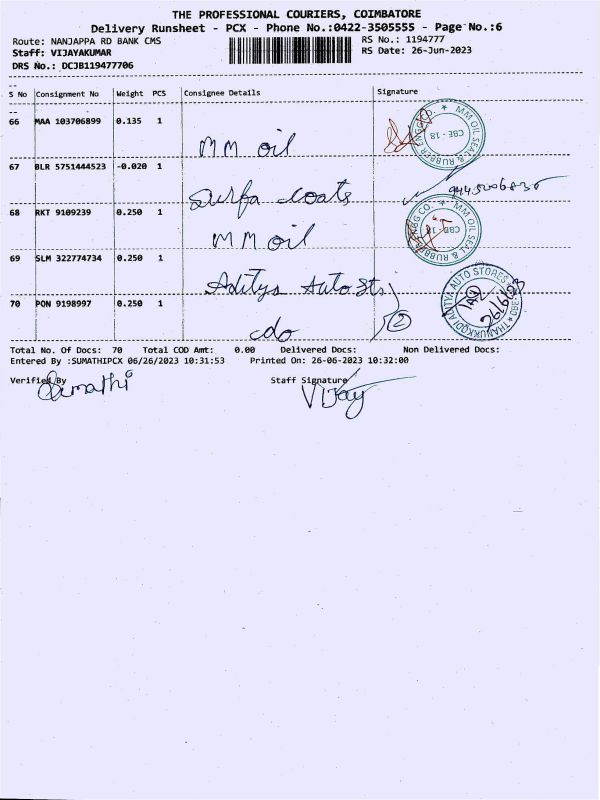 THE PROFESSIONAL COURIERS, COIMBATORE
Delivery Runsheet - PCX - Phone No.:0422-3505555 - Page No.:6
Route: NANJAPPA RD BANK CMS
RS No.: 1194777
Staff: VIJAYAKUMAR
RS Date: 26-Jun-2023
DRS No.: DCJB119477706
S No Consignment No Weight PCS Consignee Details Signature
66 MAA 103706899 0.135 1
MM oil
MM OIL SEAL & RUBBER ENGG CO. ★
CBE - 18
67 BLR 5751444523 -0.020 1
Surfa coats
68 RKT 9109239 0.250 1
MM oil
MM OIL SEAL & RUBBER ENGG CO. ★
69 SLM 322774734 0.250 1
Aditya Auto Sts
ADITYA AUTO STORES
26/6/23
70 PON 9198997 0.250 1
cdo
2
Total No. Of Docs: 70 Total COD Amt: 0.00 Delivered Docs: Non Delivered Docs:
Entered By :SUMATHIPCX 06/26/2023 10:31:53 Printed On: 26-06-2023 10:32:00
Verified By
Staff Signature
Sumathi
Vijay